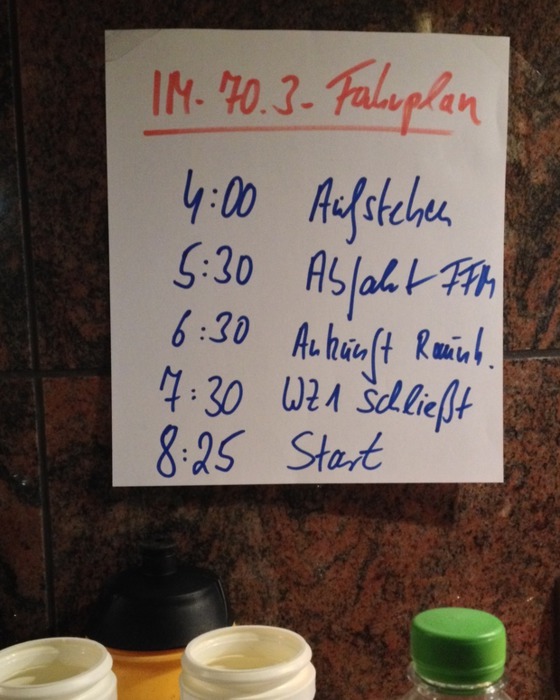 IM-70.3-Fahrplan
4:00 Aufstehen
5:30 Abfahrt FFM
6:30 Ankunft Raunh.
7:30 WZ1 schließt
8:25 Start